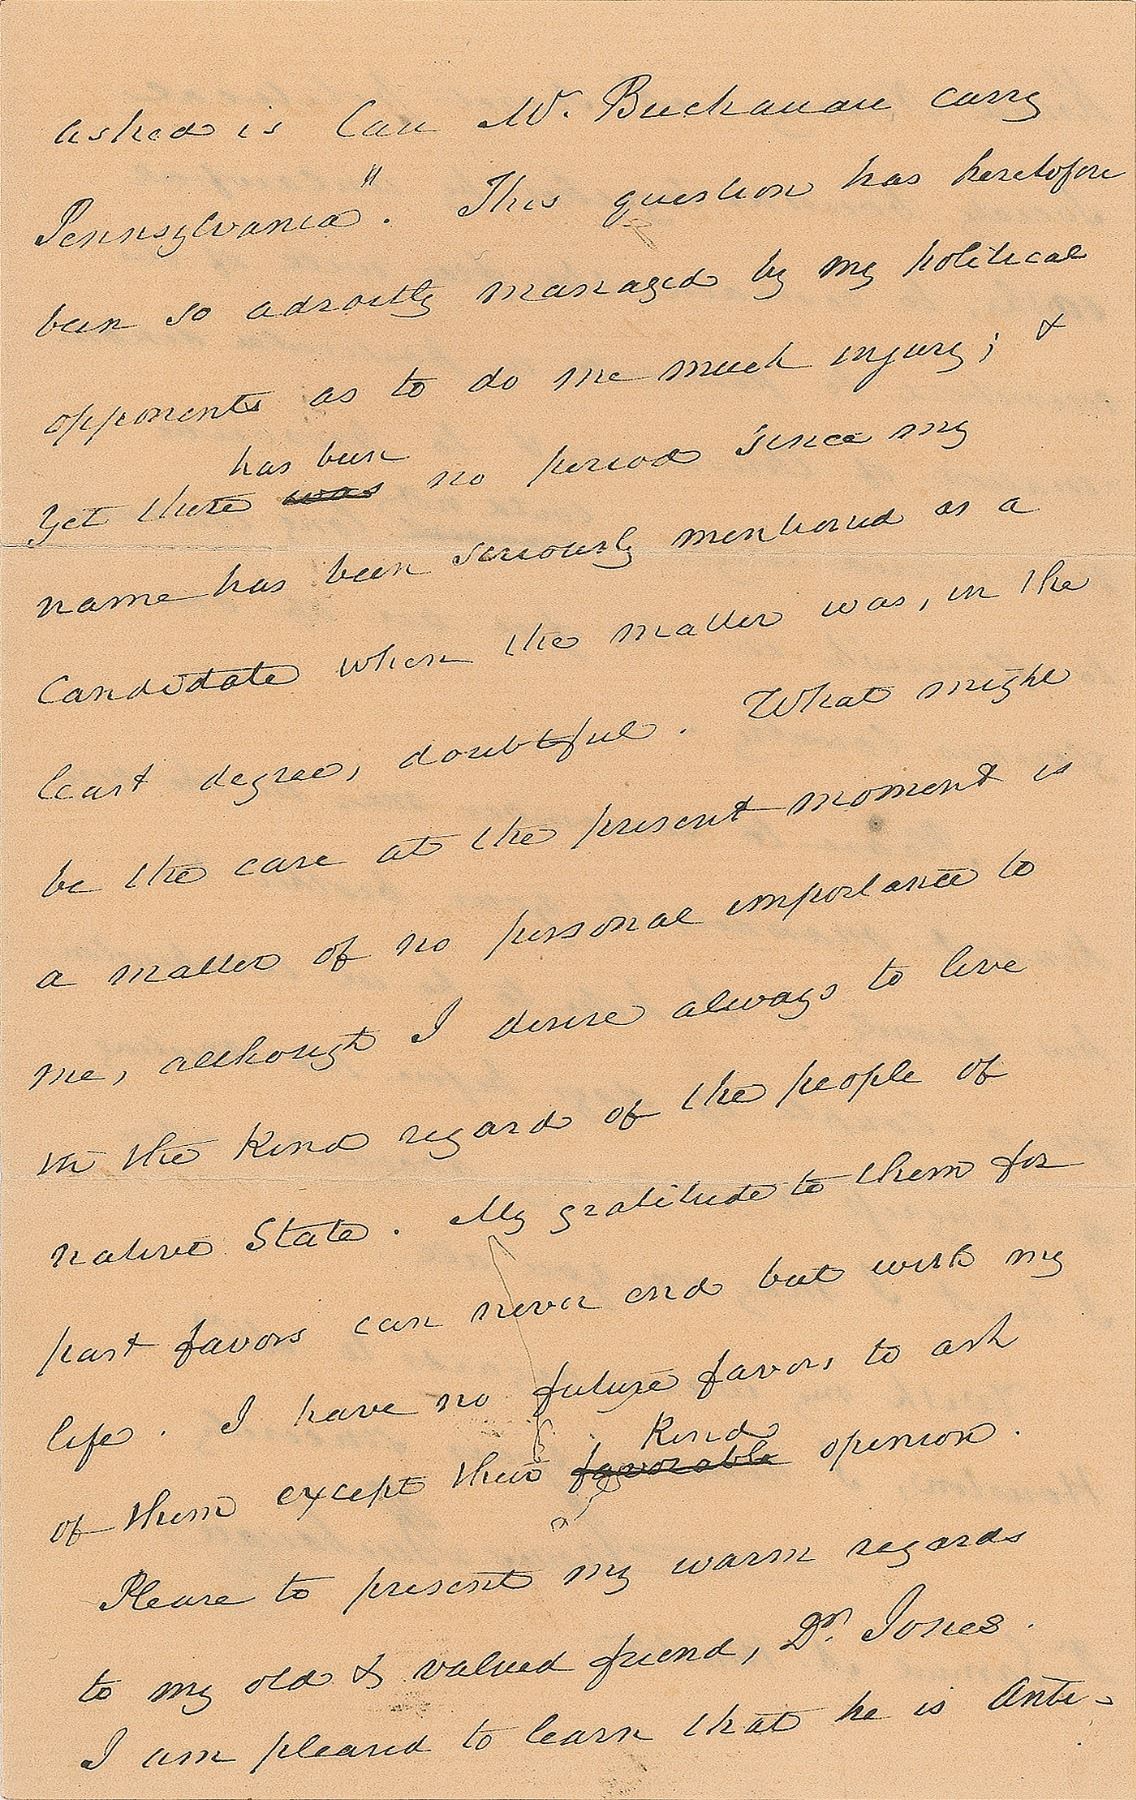 asked is Can Mr. Buchanan carry
Pennsylvania". This question has heretofore
been so adroitly managed by my political
opponents as to do me much injury; &
has been
yet there was no period since my
name has been seriously mentioned as a
candidate when the matter was, in the
least degree, doubtful. What might
be the case at the present moment is
a matter of no personal importance to
me, although I desire always to live
in the kind regard of the people of
native State. My gratitude to them for
past favors can never end but with my
life. I have no future favors to ask
Kind
of them except their favorable opinion.
Please to present my warm regards
to my old & valued friend, Dr. Jones.
I am pleased to learn that he is Anti-